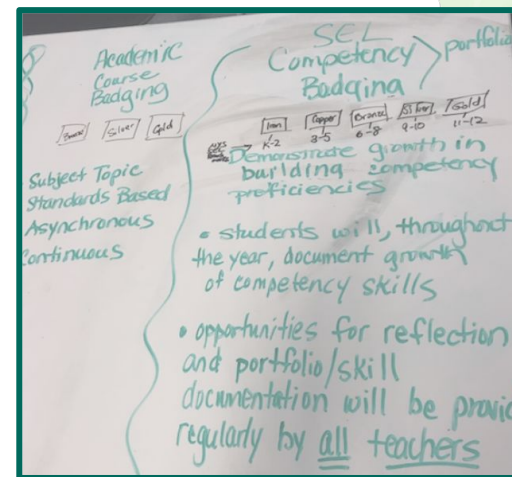 Academic
Course
Badging
Bronze Silver Gold
Subject Topic
Standards Based
Asynchronous
Continuous
SEL
Competency > portfolio
Badging
Iron Copper Bronze Silver Gold
K-2 3-5 6-8 9-10 11-12
Demonstrate growth in
building competency
proficiencies
• students will, throughout
the year, document growth
of competency skills
• opportunities for reflection
and portfolio/skill
documentation will be provid
regularly by all teachers